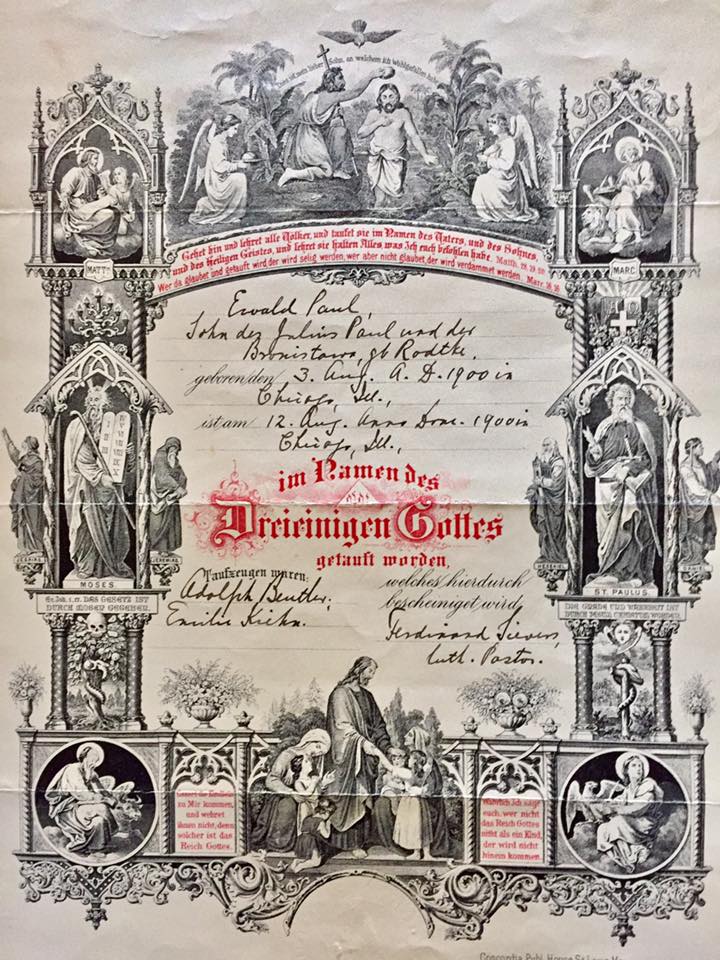 Dies ist mein lieber Sohn, an welchem ich Wohlgefallen habe
Gehet hin und lehret alle Völker, und taufet sie im Namen des Vaters, und des Sohnes,
und des Heiligen Geistes, und lehret sie halten Alles was Ich euch befohlen habe. Matth. 28, 19. 20
Wer da glaubet und getauft wird der wird selig werden, wer aber nicht glaubet, der wird verdammet werden. Marc. 16, 16
MATTH.
MARC.
Ewald Paul,
Sohn des Julius Paul und der
Bronistawa, gb Rodtke,
geboren den 3. Aug. A. D. 1900 in
Chicago, Ill.,
ist am 12. Aug. Anno Dom. 1900 in
Chicago, Ill.,
im Namen des
Dreieinigen Gottes
getauft worden,
Taufzeugen waren:
Adolph Beutler,
Emilie Kiehn.
welches hierdurch
bescheiniget wird
Ferdinand Sievers,
luth. Pastor.
JESAIAS
MOSES
JEREMIAS
HESEKIEL
ST. PAULUS
Ev. Joh. 1, 17. DAS GESETZ IST
DURCH MOSEN GEGEBEN.
DIE GNADE UND WAHRHEIT IST
DURCH JESUM CHRISTUM WORDEN.
Lasset die Kindlein
zu Mir kommen,
und wehret
ihnen nicht, denn
solcher ist das
Reich Gottes.
Wahrlich Ich sage
euch, wer nicht
das Reich Gottes
nimmt als ein Kind,
der wird nicht
hinein kommen.
Concordia Publ. House St. Louis Mo.